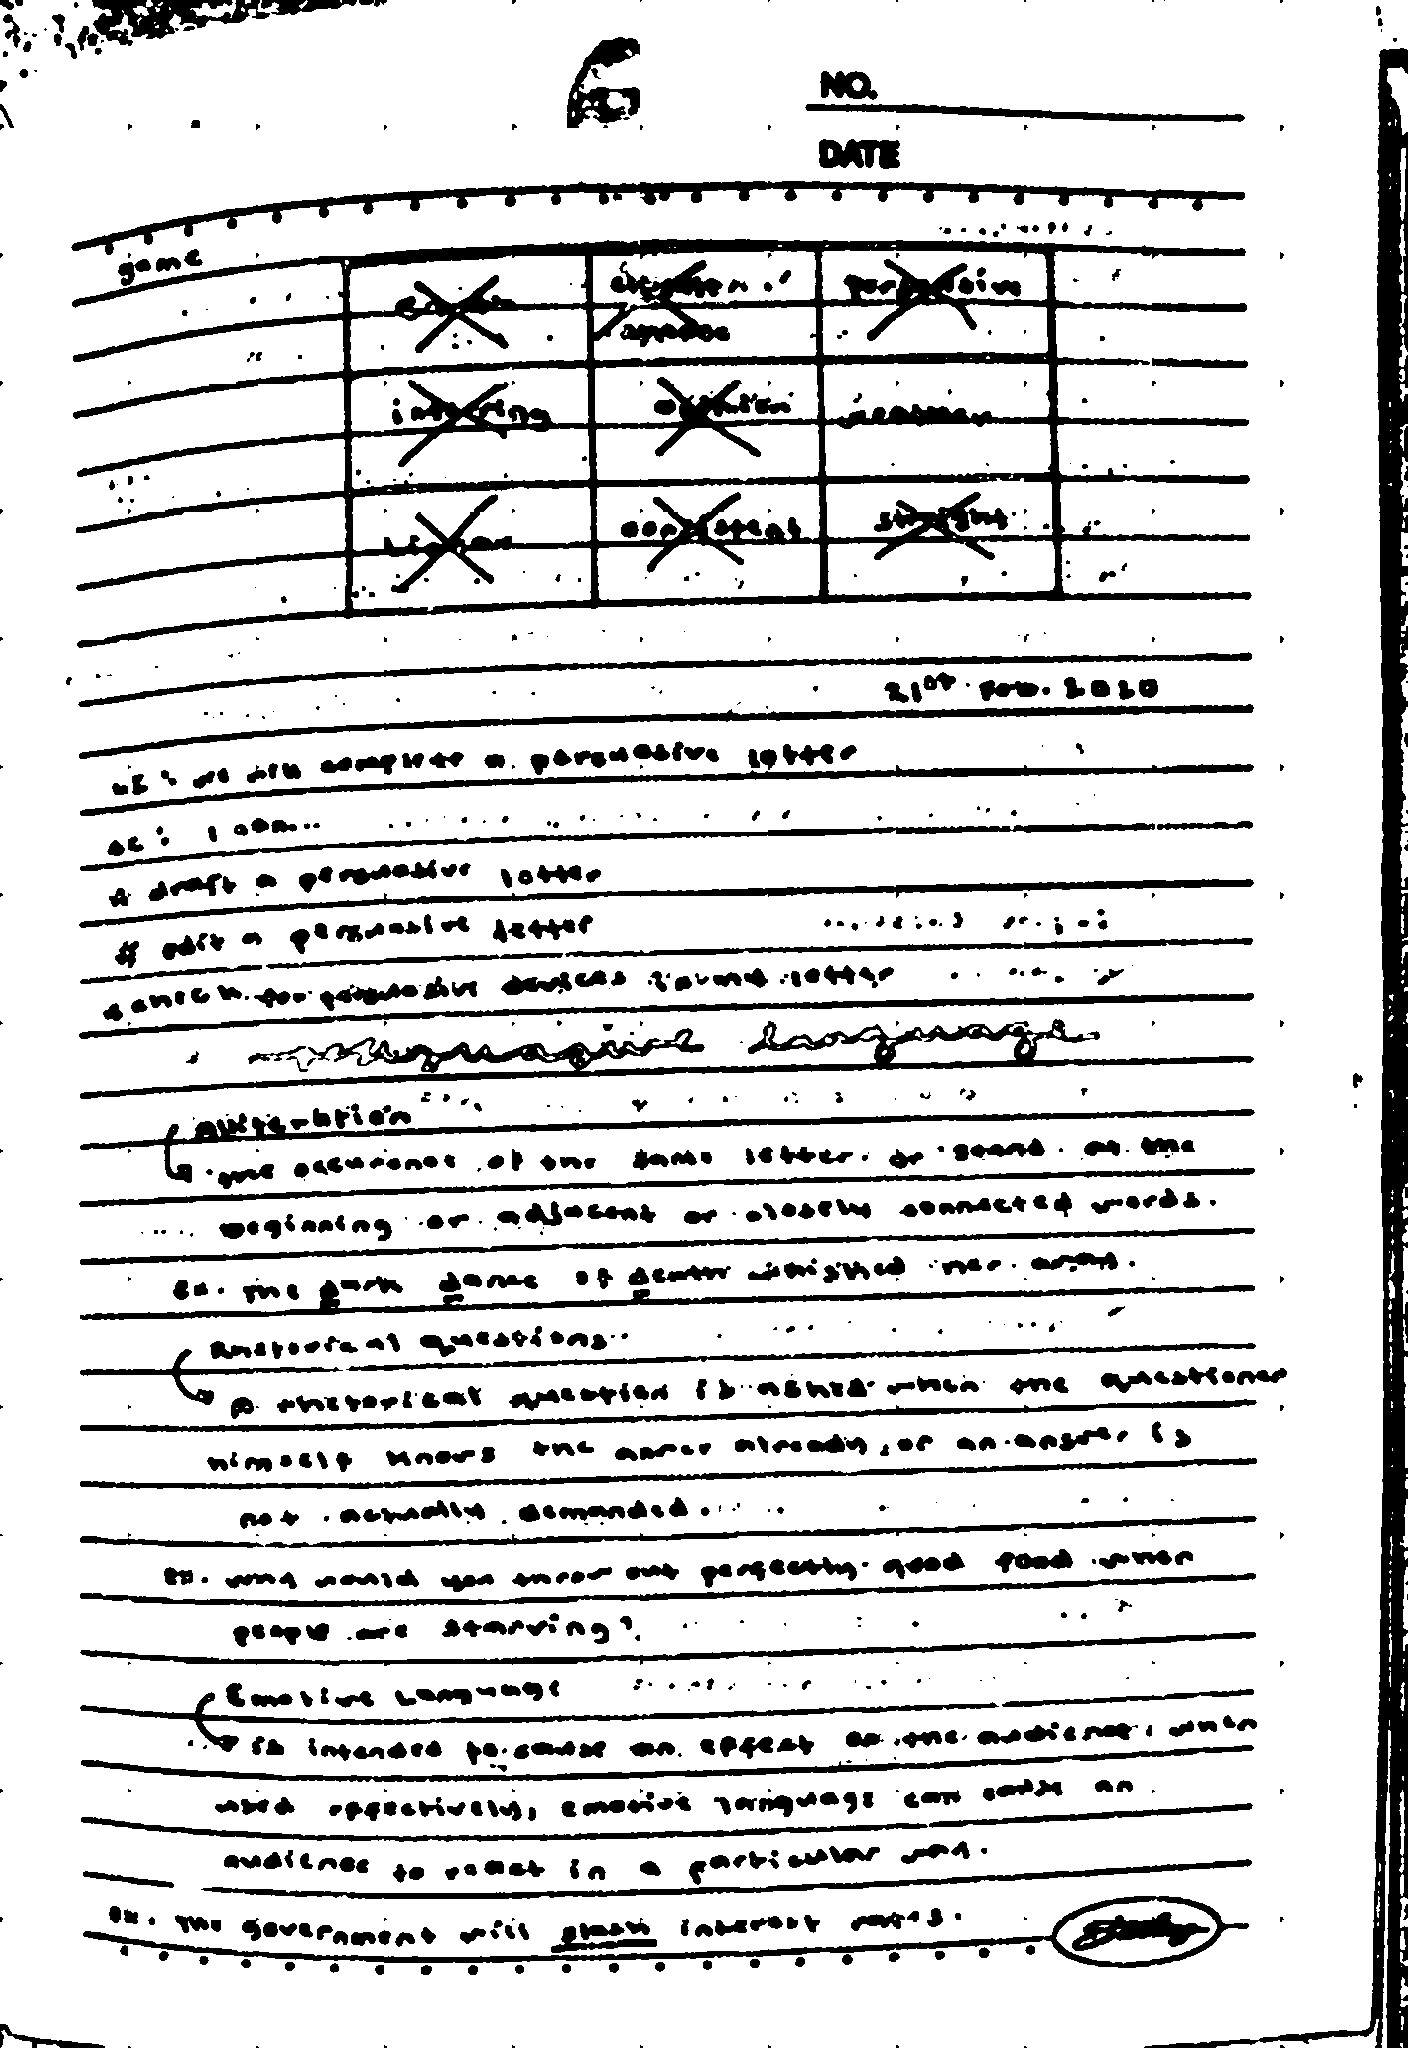 NO.
DATE
game
persuasive
inferring opinion weather
consistent straight
21st Feb. 2020
LI: we will complete a persuasive letter
SC: I can...
* draft a persuasive letter
* edit a persuasive letter
persuasive devices letter
language
Alliteration
The occurence of the same letter or sound at the
beginning or adjacent or closely connected words.
Ex. The dark dance of death diminished her
Rhetorical questions
A rhetorical question is asked when the questioner
himself knows the answer already, or an answer is
not actually demanded.
Ex. Why would you throw out perfectly good food when
people are starving?
Emotive Language
is intended to cause an effect on the audience. when
used effectively, emotive language can cause an
audience to react in a particular way.
Ex. The government will slash interest rates.